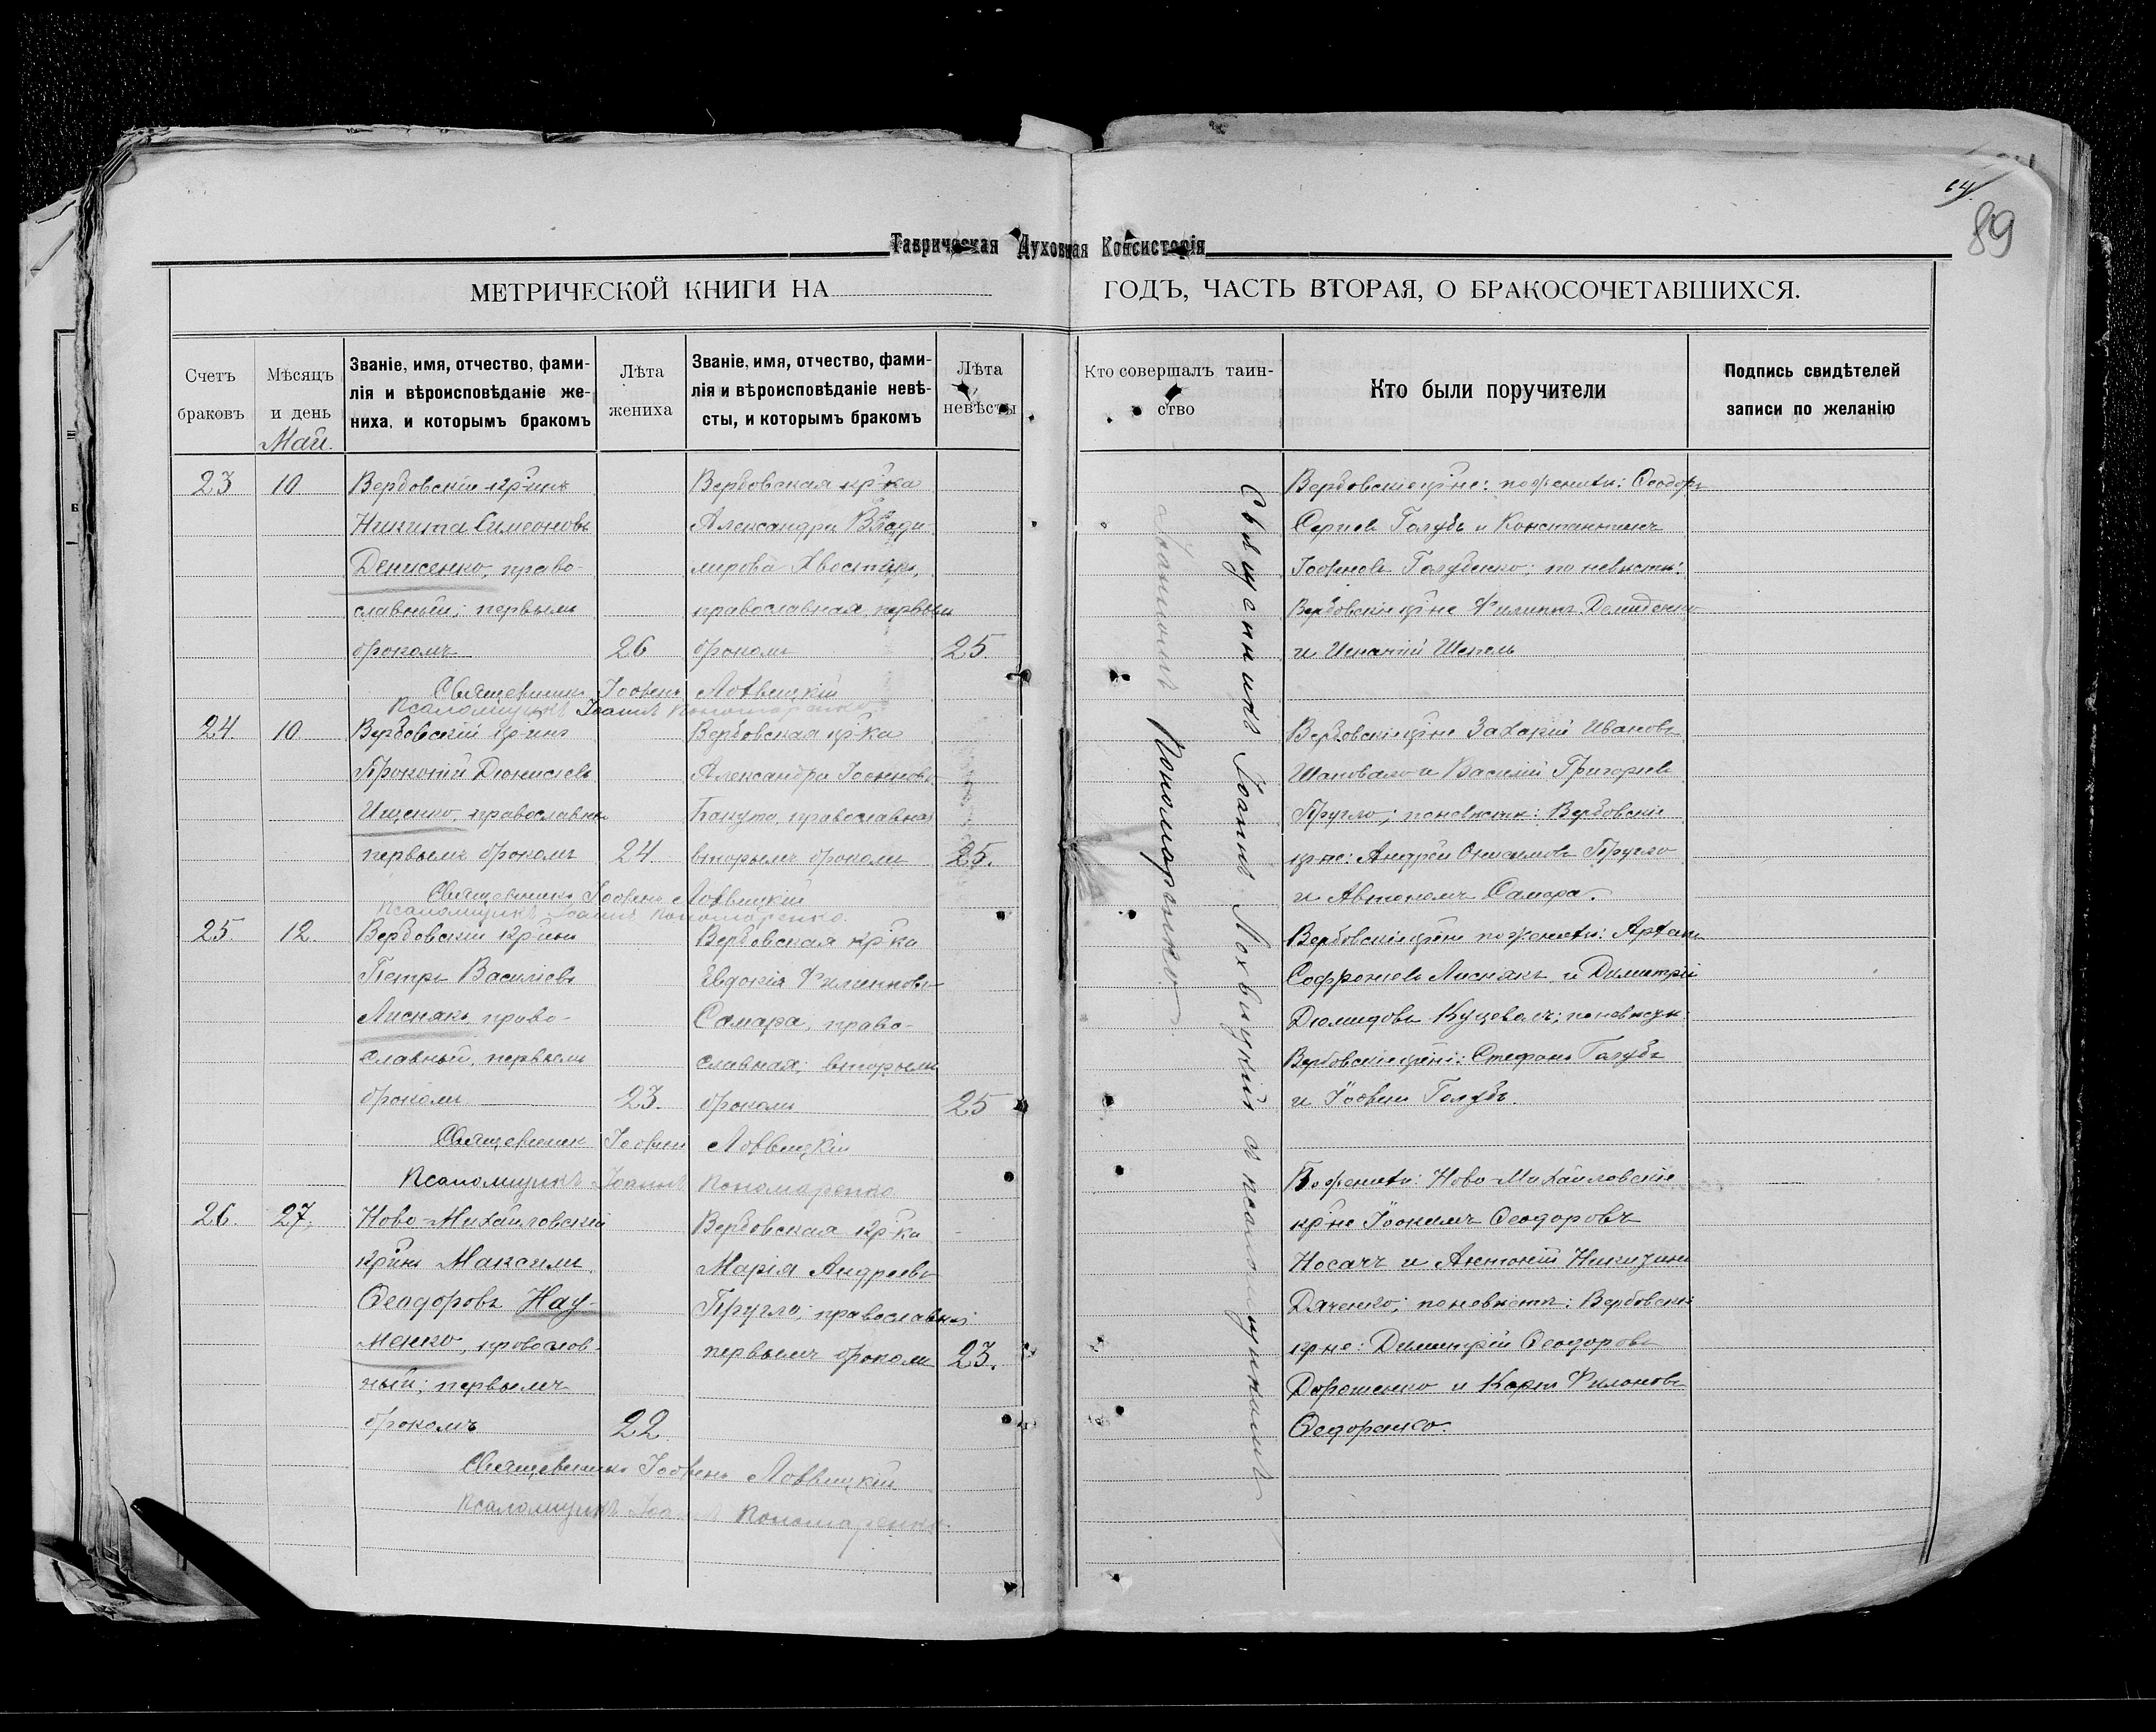 64
89
Таврическая Духовная Консисторія
МЕТРИЧЕСКОЙ КНИГИ НА ГОДЪ, ЧАСТЬ ВТОРАЯ, О БРАКОСОЧЕТАВШИХСЯ.
Счетъ браковъ
Мѣсяцъ и день
Званіе, имя, отчество, фами-
лія и вѣроисповѣданіе же-
ниха, и которымъ бракомъ
Лѣта жениха
Званіе, имя, отчество, фами-
лія и вѣроисповѣданіе невѣ-
сты, и которымъ бракомъ
Лѣта невѣсты
Кто совершалъ таин-
ство
Кто были поручители
Подпись свидѣтелей
записи по желанію
Май.
23 10.
Вербовскій кр-инъ
Никита Симеоновъ
Денисенко, право-
славный; первымъ
бракомъ 26
Вербовская кр-ка
Александра Влади-
мирова
православная, первымъ
бракомъ 25
Вербовскіе кр-не: по женихѣ: Ѳеодоръ
Сергіевъ Голубъ и Константинъ
Іоанновъ Голубенко; по невѣстѣ:
Вербовскіе кр-не Филиппъ Демиденко
и Игнатій Шепель
Священникъ Іоаннъ Лохвицкій
Псаломщикъ Іоаннъ Пономаренко
24. 10.
Вербовскій кр-инъ
Прокопій Діонисіевъ
Ищенко, православный
первымъ бракомъ 24
Вербовская кр-ка
Александра Іоаннова
православная
вторымъ бракомъ 25.
Вербовскіе кр-не Захарій Ивановъ
Шаповалъ и Василій Григорьевъ
Пругло; по невѣстѣ: Вербовскіе
кр-не: Андрей Онисимовъ Пругло
и Автономъ Самара.
Священникъ Іоаннъ Лохвицкій
Псаломщикъ Іоаннъ Пономаренко.
25. 12.
Вербовскій кр-инъ
Петръ Василіевъ
Лиснякъ, право-
славный, первымъ
бракомъ 23.
Вербовская кр-ка
Евдокія Филиппова
Самара, право-
славная; вторымъ
бракомъ 25
Вербовскіе кр-не по женихѣ:
Софроніевъ Лиснякъ и Димитрій
Діомидовъ; по невѣстѣ:
Вербовскіе кр-не: Стефанъ Голубъ
и Іоаннъ Голубъ.
Священникъ Іоаннъ Лохвицкій
Псаломщикъ Іоаннъ Пономаренко
26. 27.
Ново-Михайловскій
кр-инъ Максимъ
Ѳеодоровъ Нау-
менко, православ-
ный; первымъ
бракомъ 22
Вербовская кр-ка
Марія Андреева
Пругло; православная
первымъ бракомъ 23.
По женихѣ: Ново-Михайловскіе
кр-не Іоакимъ Ѳеодоровъ
Носачъ и Антоній Никитинъ
Дяченко; по невѣстѣ: Вербовскіе
кр-не: Димитрій Ѳеодоровъ
Дорошенко и Карпъ Филоновъ
Ѳедоренко.
Священникъ Іоаннъ Лохвицкій
Псаломщикъ Іоаннъ Пономаренко.
Священникъ Іоаннъ Лохвицкій съ псаломщикомъ
Іоанномъ Пономаренко